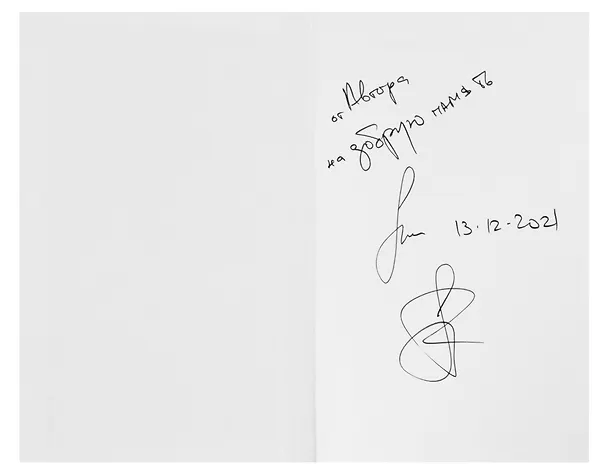 от Автора
на добрую память
13.12.2021